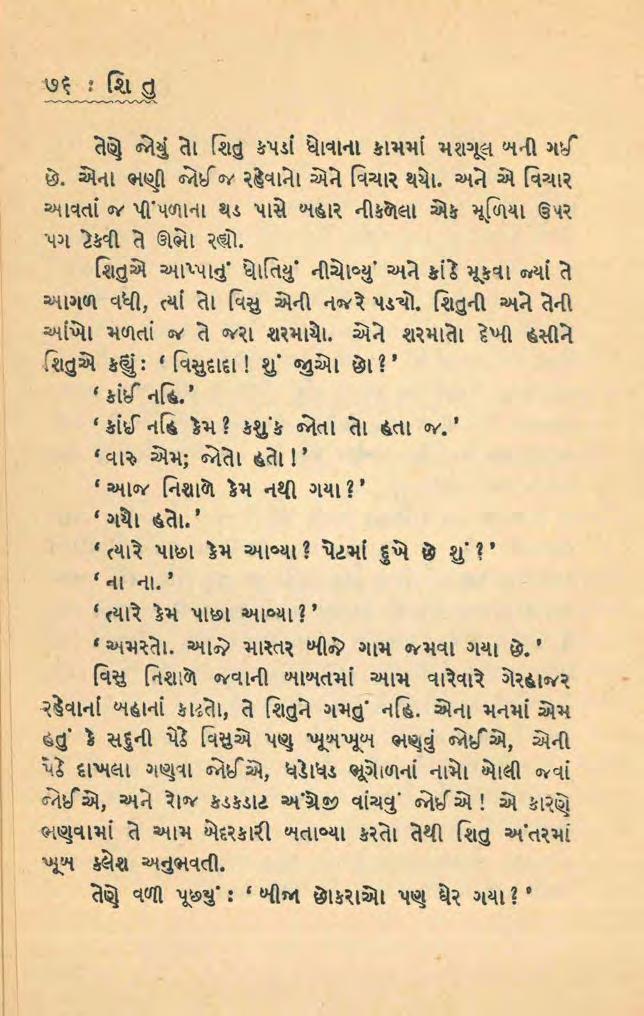 ૭૬ : શિ તુ
તેણે જોયું તો શિતુ કપડાં ધોવાના કામમાં મશગૂલ બની ગઈ
છે. એના ભણી જોઈ જ રહેવાનો એને વિચાર થયો. અને એ વિચાર
આવતાં જ પીંપળાના થડ પાસે બહાર નીકળેલા એક મૂળિયા ઉપર
પગ ટેકવી તે ઊભો રહ્યો.
શિતુએ આપ્પાનું ધોતિયું નીચોવ્યું અને કાંઠે મૂકવા જ્યાં તે
આગળ વધી, ત્યાં તો વિસુ એની નજરે પડ્યો. શિતુની અને તેની
આંખો મળતાં જ તે જરા શરમાયો. એને શરમાતો દેખી હસીને
શિતુએ કહ્યું: ‘ વિસુદાદા ! શું જુઓ છો ? ’
‘ કાંઈ નહિ. ’
‘ કાંઈ નહિ કેમ ? કશુંક જોતા તો હતા જ. ’
‘ વારુ એમ; જોતો હતો ! ’
‘ આજ નિશાળે કેમ નથી ગયા ? ’
‘ ગયો હતો. ’
‘ ત્યારે પાછા કેમ આવ્યા ? પેટમાં દુખે છે શું ? ’
‘ ના ના. ’
‘ ત્યારે કેમ પાછા આવ્યા ? ’
‘ અમસ્તો. આજે માસ્તર બીજે ગામ જમવા ગયા છે. ’
વિસુ નિશાળે જવાની બાબતમાં આમ વારેવારે ગેરહાજર
રહેવાનાં બહાનાં કાઢતો, તે શિતુને ગમતું નહિ. એના મનમાં એમ
હતું કે સદુની પેઠે વિસુએ પણ ખૂબખૂબ ભણવું જોઈએ, એની
પેઠે દાખલા ગણવા જોઈએ, ધડાધડ ભૂગોળનાં નામો બોલી જવાં
જોઈએ, અને રોજ કડકડાટ અંગ્રેજી વાંચવું જોઈએ ! એ કારણે
ભણવામાં તે આમ બેદરકારી બતાવ્યા કરતો તેથી શિતુ અંતરમાં
ખૂબ ક્લેશ અનુભવતી.
તેણે વળી પૂછ્યું : ‘ બીજા છોકરાઓ પણ ઘેર ગયા ? ’